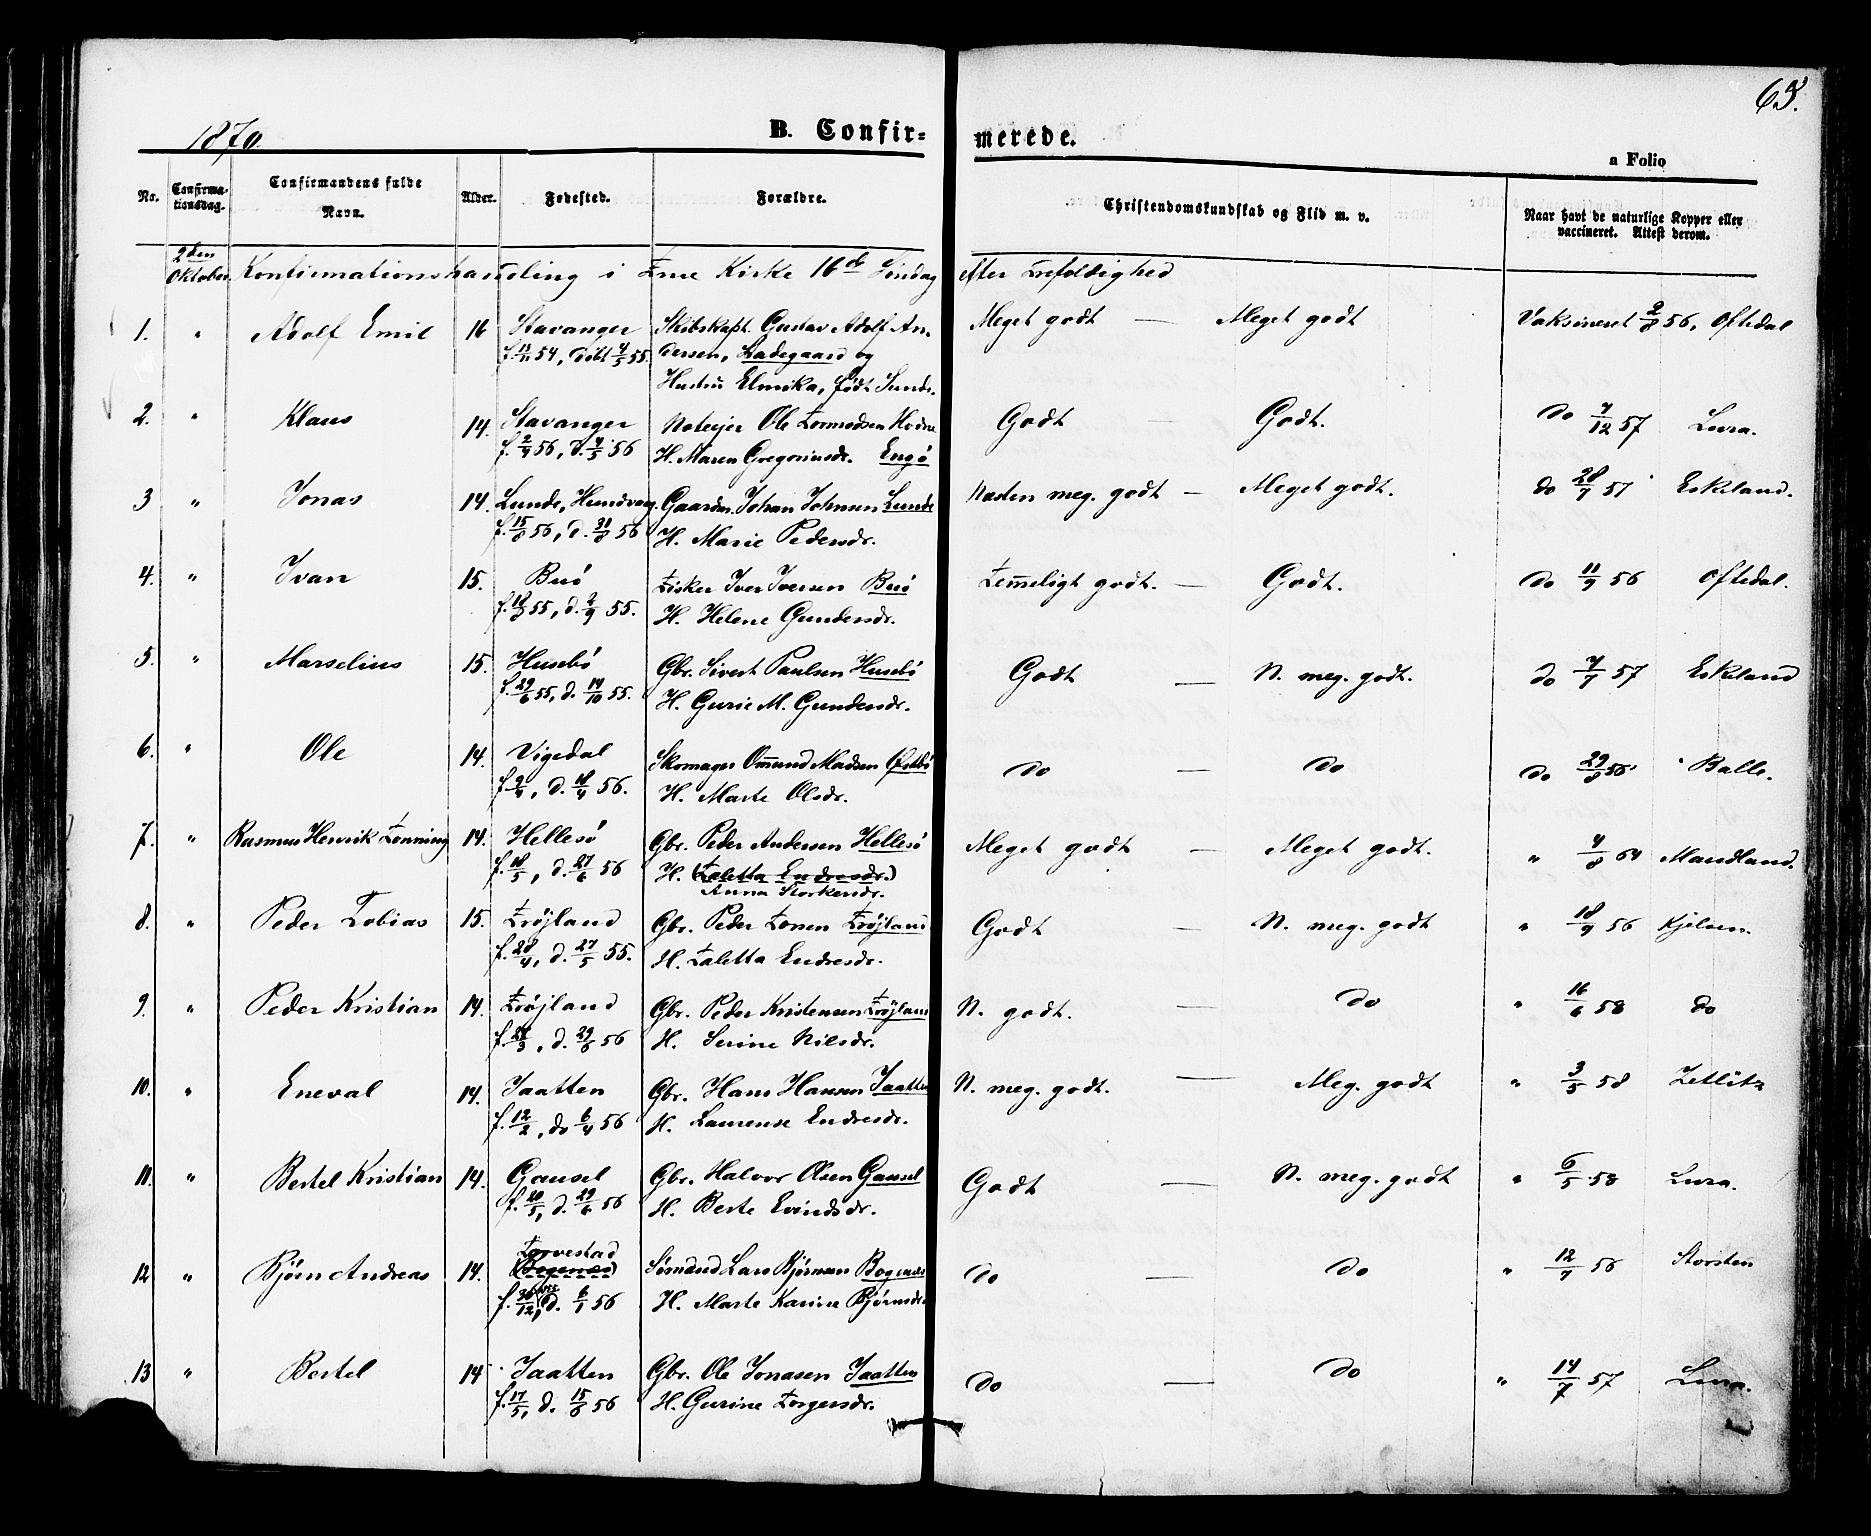 65.
1870.
B. Confir-
merede.
a Folio
No.
Confirma-
tionsdag.
Confirmandens fulde
Navn.
Alder.
Fødested.
Forældre.
Christendomskundskab og Flid m. v.
Naar havt de naturlige Kopper eller
vaccineret. Attest derom.
2den
Oktober. Konfirmationshandling i Kirke 16de Søndag after Trefoldighed
1. " Adolf Emil 16 Stavanger Skibskapt. Gustav Adolf An- Meget godt — Meget godt Vaksineret 56, Oftedal
54, døbt 4/5 55. dersen, Ladegaard og
Hustru Elmika, født Sunde.
2. " Klaus 14. Stavanger Noteier Ole Tormodsen Hodne Godt — Godt. do 7/12 57 Lura.
f. 2/4 56, d. 4/5 56 H. Maren Gregoriusdr. Engø
3 " Jonas 14. Lunde, Hundvaag. Gaardm. Johan Johnsen Lunde Næsten meg. godt — Meget godt. do 28/7 57 Eskeland.
f. 15/8 56, d. 31/8 56 H. Marie Pedersdr.
4. " Ivan 15. Buø Fisker Iver Iversen Buø Temeligt godt. — Godt. do 11/9 56 Oftedal.
55, d. 2/9 55. H. Helene Gundersdr.
5. " Marselius 15. Husebø Gbr. Sivert Paulsen Husebø Godt — N. meg. godt. do 7/7 57 Eskeland
f. 29/6 55, d. 14/10 55. H. Gurie M. Gundersdr.
6. " Ole 14. Vigedal Skomager Omund Madsen Østbø do — do do 29/8 56 Balle.
f. 2/4, d. 18/4 56. H. Marte Olsdr.
7. " Rasmus Henrik Tønning 14. Hellesø Gbr. Peder Andersen Hellesø Meget godt — Meget godt. " 4/8 64 Mandland.
f. 18/5, d. 27/6 56 H. (Taletta Endresdr.)
Anna Storkersdr.
8. " Peder Tobias 15. Trøjland Gbr. Peder Tørresen Trøjland Godt — N. meg. godt " 18/9 56 Kjelsen.
f. 28/4, d. 27/5 55. H. Taletta Endresdr.
9. " Peder Kristian 14. Trøjland Gbr. Peder Kristensen Trøjland N. godt. — do " 16/6 58 do
d. 29/6 56 H. Serine Nilsdr.
10. " Eneval 14. Jaatten Gbr. Hans Hansen Jaatten N. meg. godt. — Meg. godt " 3/5 58 Zetlitz
f. 12/2, do 6/4 56 H. Laurense Endresdr.
11. " Bertel Kristian 14. Gausel Gbr. Halvor Olsen Gausel Godt — N. meg. godt " 6/5 58 Lura.
f. 20/5, d. 29/6 56 H. Berte Evindsdr.
Torvestad
12 " Bjørn Andreas 14. (Bogenæs) Sømand Lars Bjørnsen Bogenæs do — do " 12/7 56 Storsten
f. 30/12, d. 6/1 56 H. Marte Karine Bjørnsdr.
13 " Bertel 14 Jaatten Gbr. Ole Jonasen Jaatten do — do " 14/7 57 Lura.
f. 17/5, d. 15/6 56 H. Gurine Torgersdr.